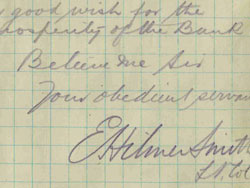 good wish for the
prosperity of the Bank
Believe me Sir
Your obedient servan
E Hilmer Smith
Lt. Col